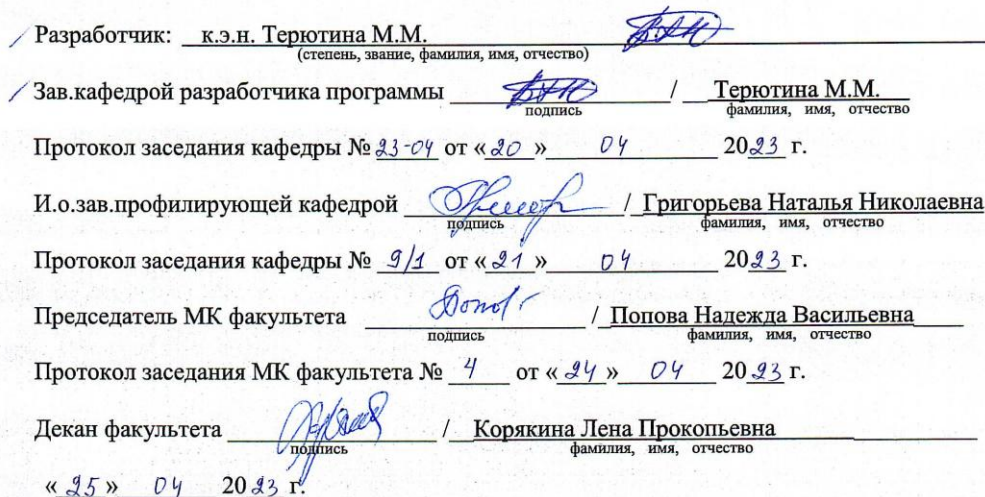 Разработчик: к.э.н. Терютина М.М.
(степень, звание, фамилия, имя, отчество)
Зав.кафедрой разработчика программы / Терютина М.М.
подпись фамилия, имя, отчество
Протокол заседания кафедры № 23-04 от «20» 04 2023 г.
И.о.зав.профилирующей кафедрой / Григорьева Наталья Николаевна
подпись фамилия, имя, отчество
Протокол заседания кафедры № 9/1 от «21» 04 2023 г.
Председатель МК факультета / Попова Надежда Васильевна
подпись фамилия, имя, отчество
Протокол заседания МК факультета № 4 от «24» 04 2023 г.
Декан факультета / Корякина Лена Прокопьевна
подпись фамилия, имя, отчество
«25» 04 2023 г.